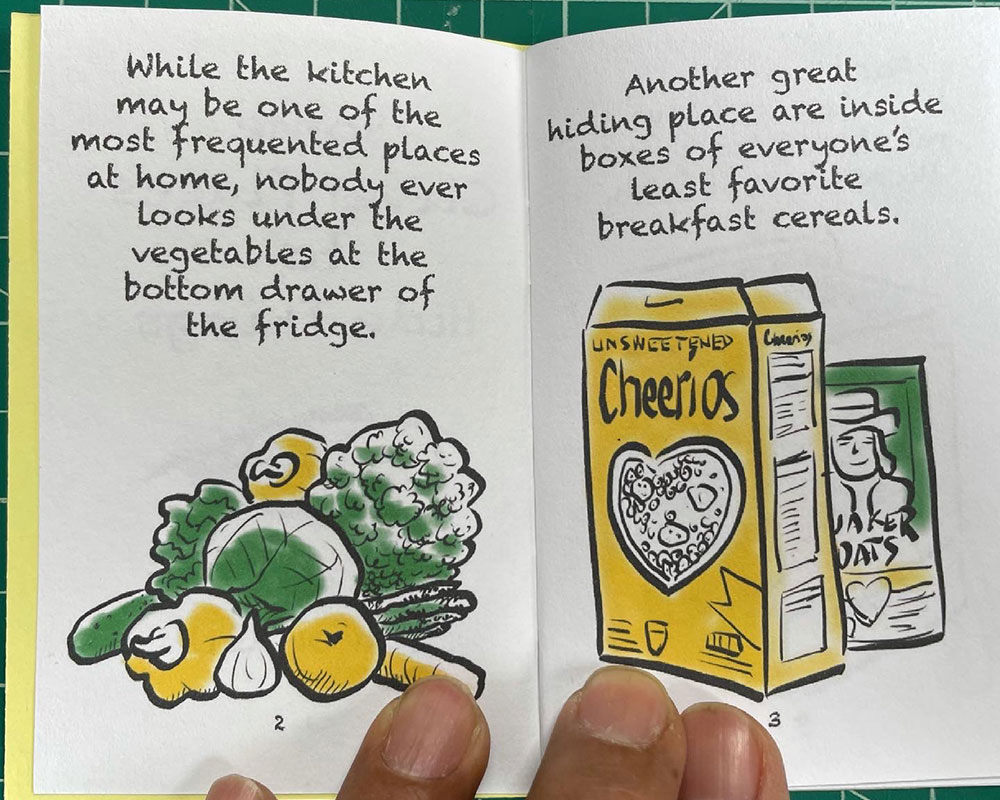 While the kitchen
may be one of the
most frequented places
at home, nobody ever
looks under the
vegetables at the
bottom drawer of
the fridge.
2
Another great
hiding place are inside
boxes of everyone's
least favorite
breakfast cereals.
UNSWEETENED
Cheerios
Cheerios
UAKER
OATS
3